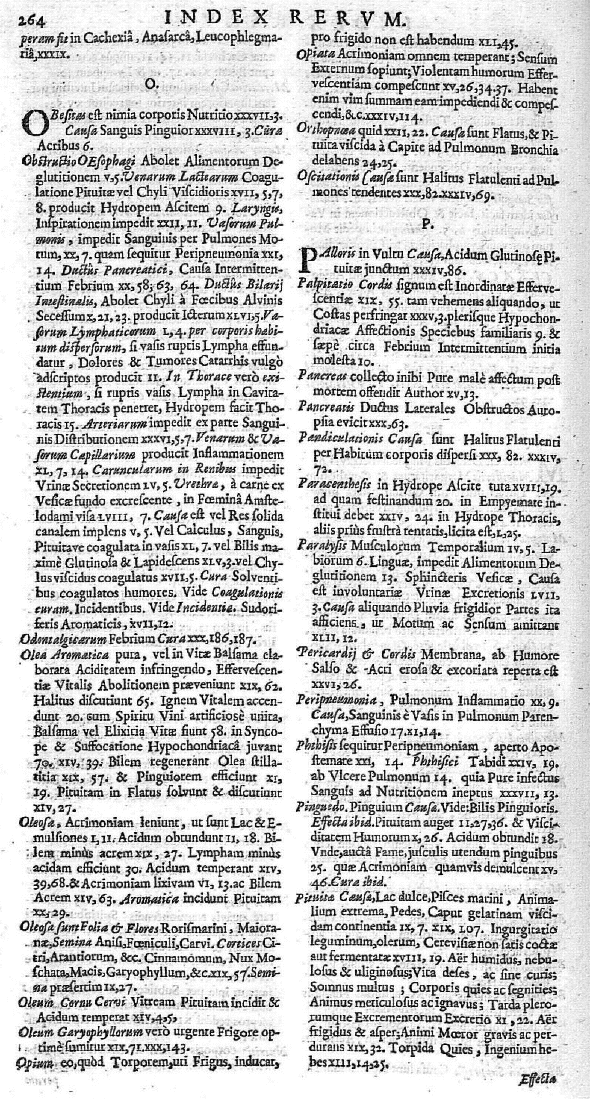 264 INDEX RERVM.
peram fit in Cachexiâ, Anasarcâ, Leucophlegma-
riâ,xxxix.
O.
OBesitas est nimia corporis Nutritio xxxvii,3.
Causa Sanguis Pinguior xxxviii, 3. Cura
Acribus 6.
Obstructio OEsophagi Abolet Alimentorum De-
glutitionem v.5. Venarum Lactearum Coagu-
latione Pituitæ vel Chyli Viscidioris xvii, 5,7,
8. producit Hydropem Ascitem 9. Laryngis,
Inspirationem impedit xxii, 11. Vasorum Pul-
monis, impedit Sanguinis per Pulmones Mo-
tum, xx, 7. quam sequitur Peripneumonia xxi,
14. Ductûs Pancreatici, Causa Intermitten-
tium Febrium xx, 58; 63, 64. Ductûs Bilarij
Intestinalis, Abolet Chyli à Fœcibus Alvinis
Secessum x, 21, 23. producit Icterum xlvi,5. Va-
sorum Lymphaticorum l, 4. per corporis habi-
tum dispersorum, si vasis ruptis Lympha effun-
datur, Dolores & Tumores Catarrhis vulgò
adscriptos producit 11. In Thorace verò exi-
stentium, si ruptis vasis Lympha in Cavita-
tem Thoracis penetret, Hydropem facit Tho-
racis 15. Arteriarum impedit ex parte Sangui-
nis Distributionem xxxvi,5,7. Venarum & Va-
sorum Capillarium producit Inflammationem
xl, 7, 14. Caruncularum in Renibus impedit
Vrinæ Secretionem lv, 5. Urethræ, à carne ex
Vesicæ fundo excrescente, in Fœminâ Amste-
lodami visa lviii, 7. Causa est vel Res solida
canalem implens v, 5. Vel Calculus, Sanguis,
Pituitave coagulata in vasis xl, 7. vel Bilis ma-
ximè Glutinosa & Lapidescens xlv,3. vel Chy-
lus viscidus coagulatus xvii,5. Cura Solventi-
bus coagulatos humores. Vide Coagulationis
curam. Incidentibus. Vide Incidentia. Sudori-
feris Aromaticis, xvii,12.
Odontalgicarum Febrium Cura xxx,186,187.
Olea Aromatica pura, vel in Vitæ Balsama ela-
borata Aciditatem infringendo, Effervescen-
tiæ Vitalis Abolitionem præveniunt xix, 62.
Halitus discutiunt 65. Ignem Vitalem accen-
dunt 20. sum Spiritu Vini artificiosè unita,
Balsama vel Elixiria Vitæ fiunt 58. in Synco-
pe & Suffocatione Hypochondriacâ juvant
79. xiv, 39. Bilem regenerant Olea stilla-
titia xix, 57. & Pinguiotem efficiunt xi,
19. Pituitam in Flatus solvunt & discutiunt
xiv, 27.
Oleosa, Acrimoniam leniunt, ut sunt Lac & E-
mulsiones l, 11. Acidum obtundunt ii, 18. Bi-
lem minùs acrem xix, 27. Lympham minùs
acidam efficiunt 30. Acidum temperant xiv,
39,68. & Acrimoniam lixivam vi, 13. ac Bilem
Acrem xiv, 63. Aromatica incidunt Pituitam
xx, 29.
Oleosa sunt Folia & Flores Rorismarini, Maiora-
næ, Semina Anisi, Fœniculi, Carvi. Cortices Ci-
tri, Arantiorum, &c. Cinnamomum, Nux Mo-
schata, Macis, Garyophyllum, &c.xix, 57. Semi-
na præsertim ix, 27.
Oleum Cornu Cervi Vitream Pituitam incidit &
Acidum temperat xiv,45,
Oleum Garyophyllorum verò urgente Frigore op-
timè sumitur xix,71.xxx,143.
Opium eo, quòd Torporem, uti Frigus, inducat,
pro frigido non est habendum xli,45.
Opiata Acrimoniam omnem temperant; Sensum
Externum sopiunt; Violentam humorum Effer-
vescentiam compescunt xv,26,34.37. Habent
enim vim summam eam impediendi & compes-
cendi, &c.xxxiv,114.
Orthopnœa quid xxii, 22. Causa sunt Flatus, & Pi-
tuita viscida à Capite ad Pulmonum Bronchia
delabens 24,25.
Oscitationis Causa sunt Halitus Flatulenti ad Pul-
mones tendentes xxx,82.xxxiv,69.
P.
PAlloris in Vultu Causa, Acidum Glutinosę Pi-
tuitæ junctum xxxiv,86.
Palpitatio Cordis signum est Inordinatæ Efferve-
scentiæ xix, 55. tam vehemens aliquando, ut
Costas perfringat xxxv,3. plerisque Hypochon-
driacæ Affectionis Speciebus familiaris 9. &
sæpè circa Febrium Intermittencium initia
molesta 10.
Pancreas collecto inibi Pure malè affectum post
mortem offendit Author xv,13.
Pancreatis Ductus Laterales Obstructos Auto-
psia evicit xxx,63.
Pandiculationis Causa sunt Halitus Flatulenti
per Habitum corporis dispersi xxx, 82. xxxiv,
72.
Paracenthesis in Hydrope Ascite tuta xviii,19.
ad quam festinandum 20. in Empyemate in-
stitui debet xxiv, 24. in Hydrope Thoracis,
aliis priùs frustrà tentatis, licita est, l,25.
Paralysis Musculorum Temporalium iv, 5. La-
biorum 6. Linguæ, impedit Alimentorum De-
glutitionem 13. Sphincteris Vesicæ, Causa
est involuntariæ Vrinæ Excretionis lvii,
3. Causa aliquando Pluvia frigidior Partes ita
afficiens, ut Motum ac Sensum amittant
xlii, 12.
Pericardij & Cordis Membrana, ab Humore
Salso & Acri erosa & excoriata reperta est
xxvi, 26.
Peripneumonia, Pulmonum Inflammatio xx, 9.
Causa, Sanguinis è Vasis in Pulmonum Paren-
chyma Effusio 17.xi,14.
Phthisis sequitur Peripneumoniam, aperto Apo-
stemate xxi, 14. Phthisici Tabidi xxiv, 19.
ab Vlcere Pulmonum 14. quia Pure infectus
Sanguis ad Nutritionem ineptus xxxvii, 13.
Pinguedo. Pinguium Causa. Vide: Bilis Pinguioris.
Effecta ibid. Pituitam auget 11,27,36. & Visci-
ditatem Humorum x, 26. Acidum obtundit 18.
Vnde, auctâ Fame, jusculis utendum pinguibus
25. quæ Acrimoniam quamvis demulcent xv,
46. Cura ibid.
Pituitæ Causa, Lac dulce, Pisces marini, Anima-
lium extrema, Pedes, Caput gelatinam visci-
dam continentia ix, 7. xix, 107. Ingurgitatio
leguminum, olerum, Cerevisiæ non satis coctæ
aut fermentatæ xviii, 19. Aër humidus, nebu-
losus & uliginosus; Vita deses, ac sine curis;
Somnus multus; Corporis quies ac segnities;
Animus meticulosus ac ignavus; Tarda plero-
rumque Excrementorum Excretio xi, 22. Aër
frigidus & asper; Animi Mœror gravis ac per-
durans xix,32. Torpida Quies, Ingenium he-
bes xiii, 14,25.
Effecta